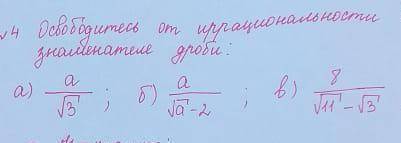 √4 Освободитесь от иррациональности
знаменателе дроби:
а) a/√3 ; б) a/(√a-2) ; в) 8/(√11-√3)